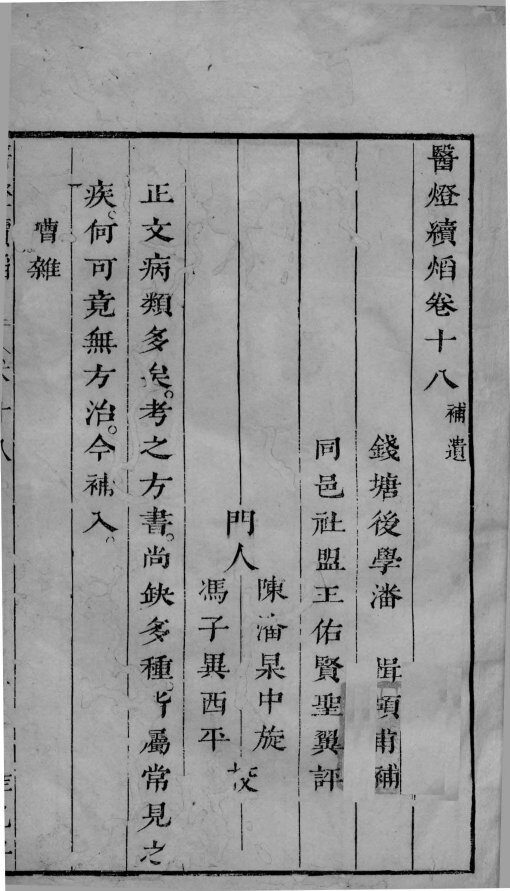 醫燈續焰卷十八 補遺
錢塘後學潘 楫碩甫補
同邑社盟王佑賢聖翼評
門人 陳潘杲中旋
馮子異西平 校
正文病類多矣。考之方書。尚缺多種。皆屬常見之
疾。何可竟無方治。今補入。
嘈雜